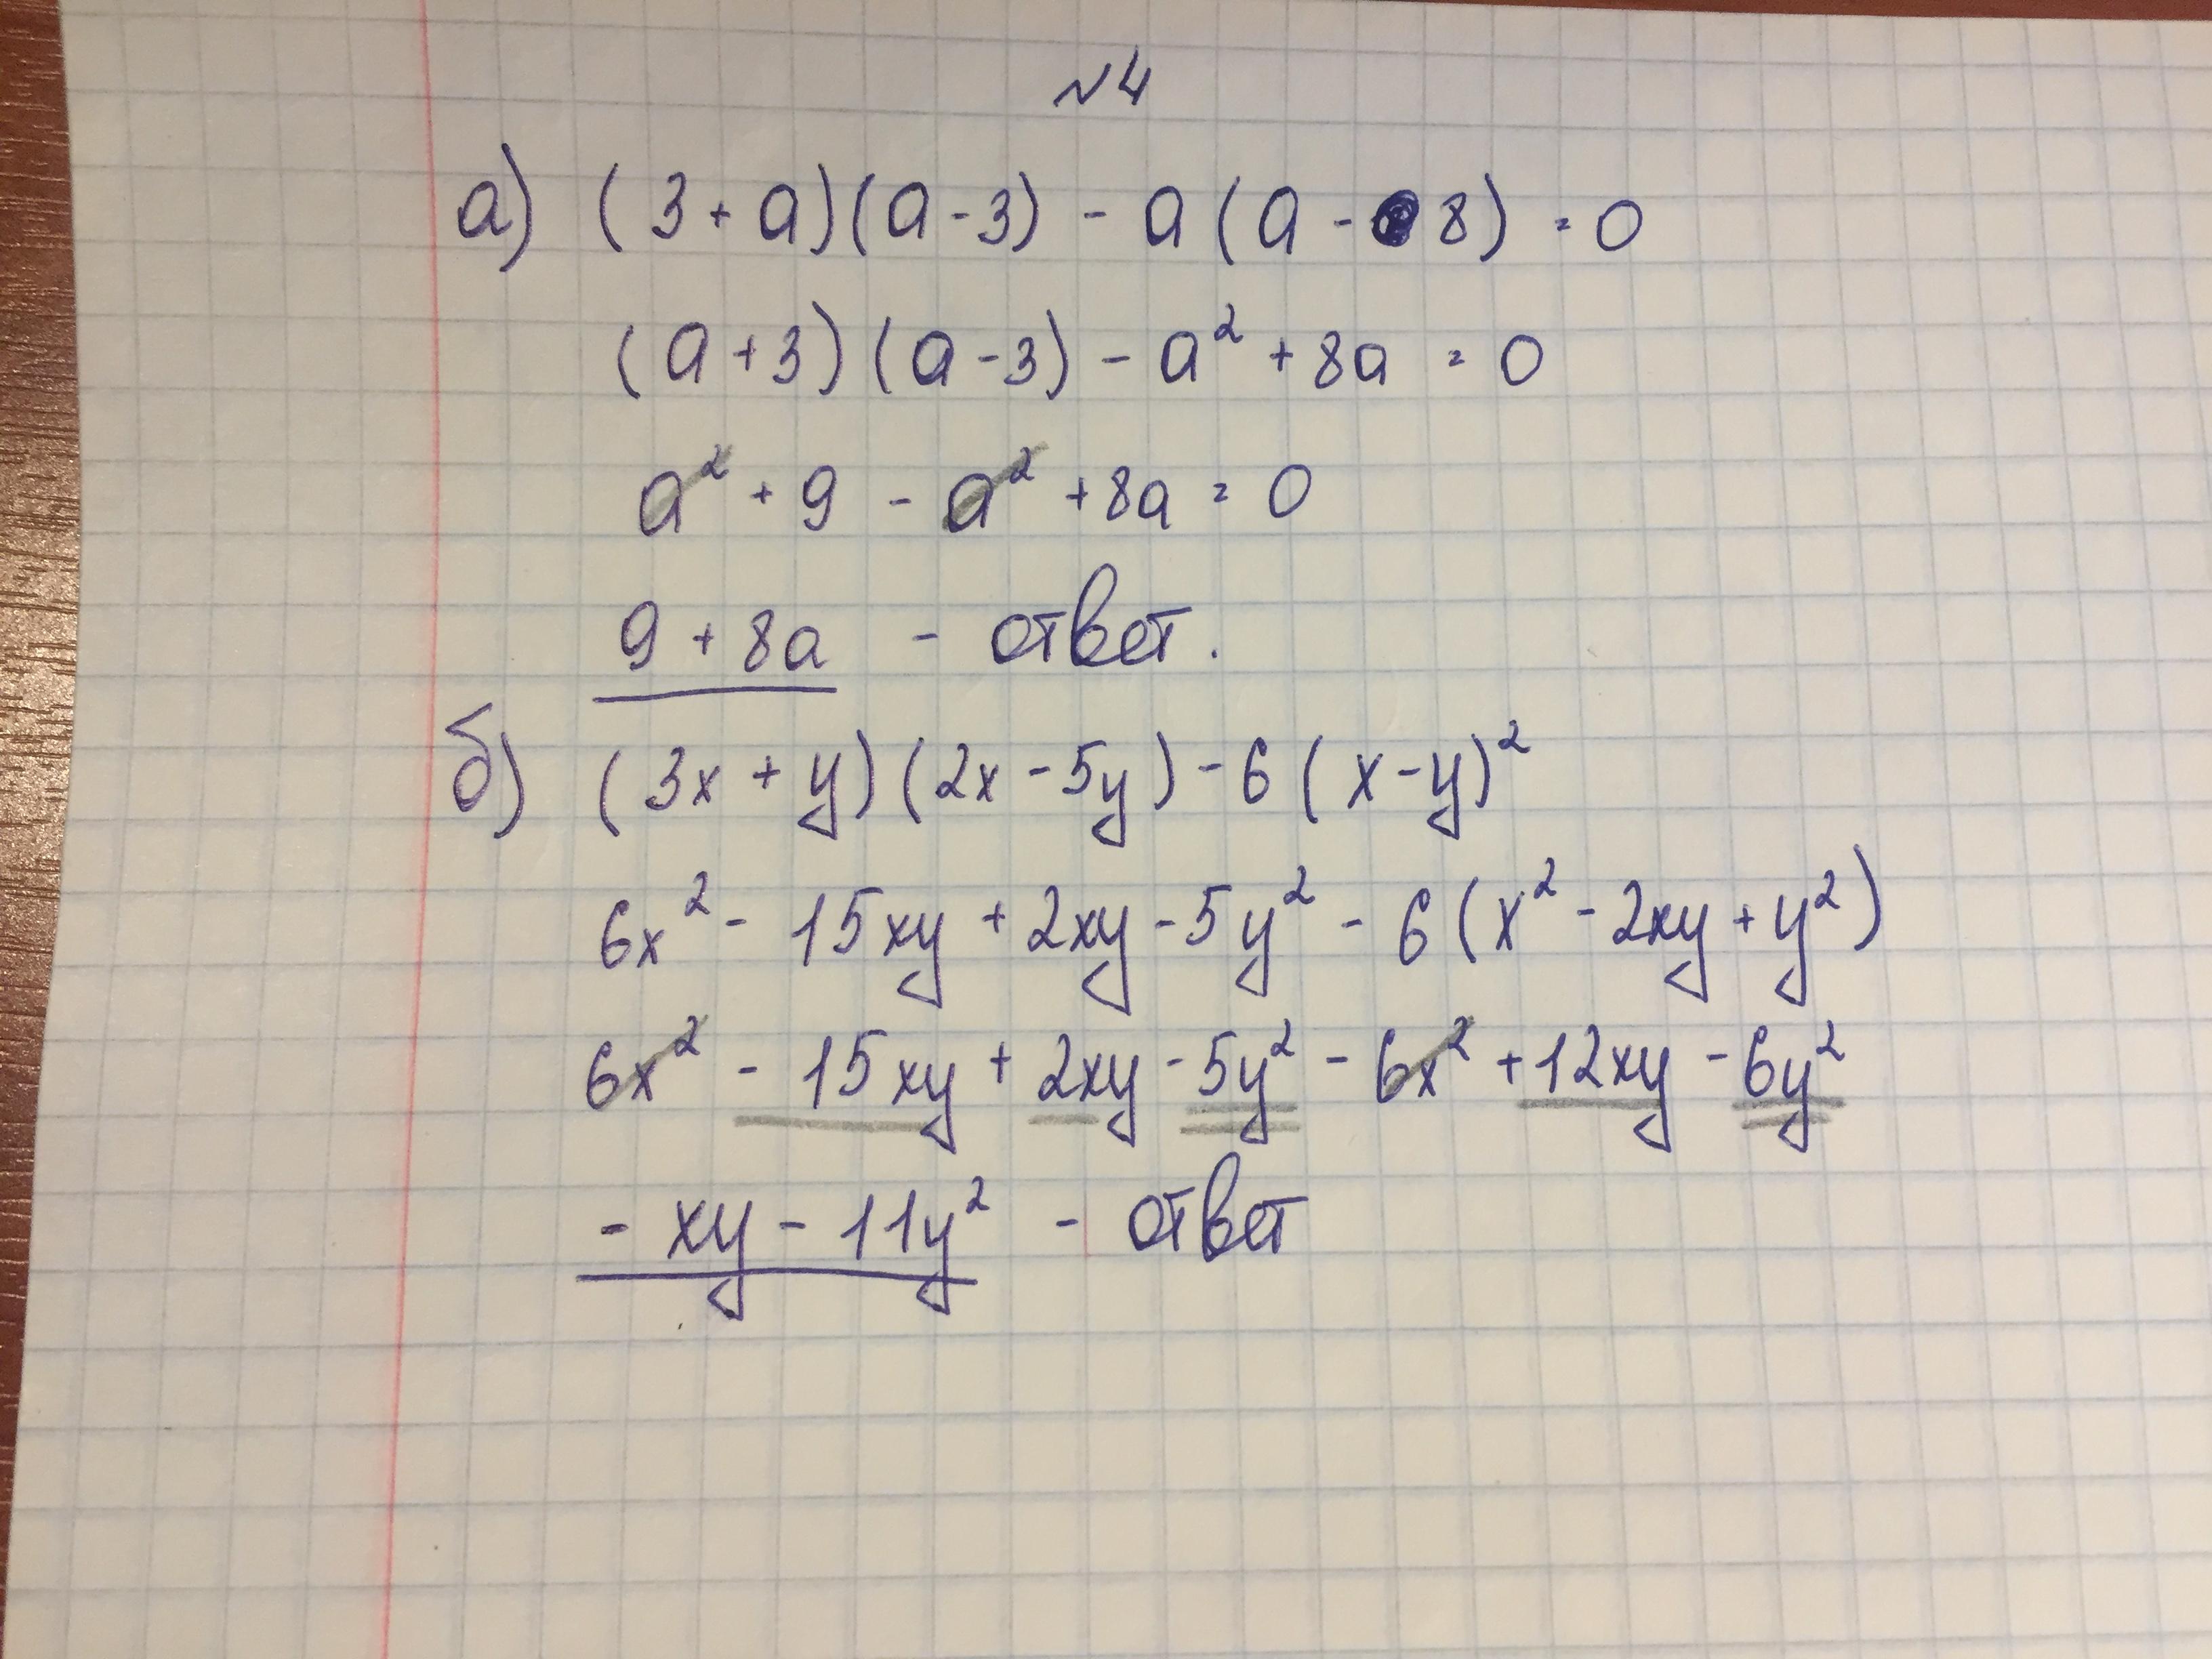 №4
а) (3 + a)(a - 3) - a(a - 8) = 0
(a + 3)(a - 3) - a² + 8a = 0
a² + 9 - a² + 8a = 0
9 + 8a - ответ.
б) (3x + y)(2x - 5y) - 6(x - y)²
6x² - 15xy + 2xy - 5y² - 6(x² - 2xy + y²)
6x² - 15xy + 2xy - 5y² - 6x² + 12xy - 6y²
- xy - 11y² - ответ